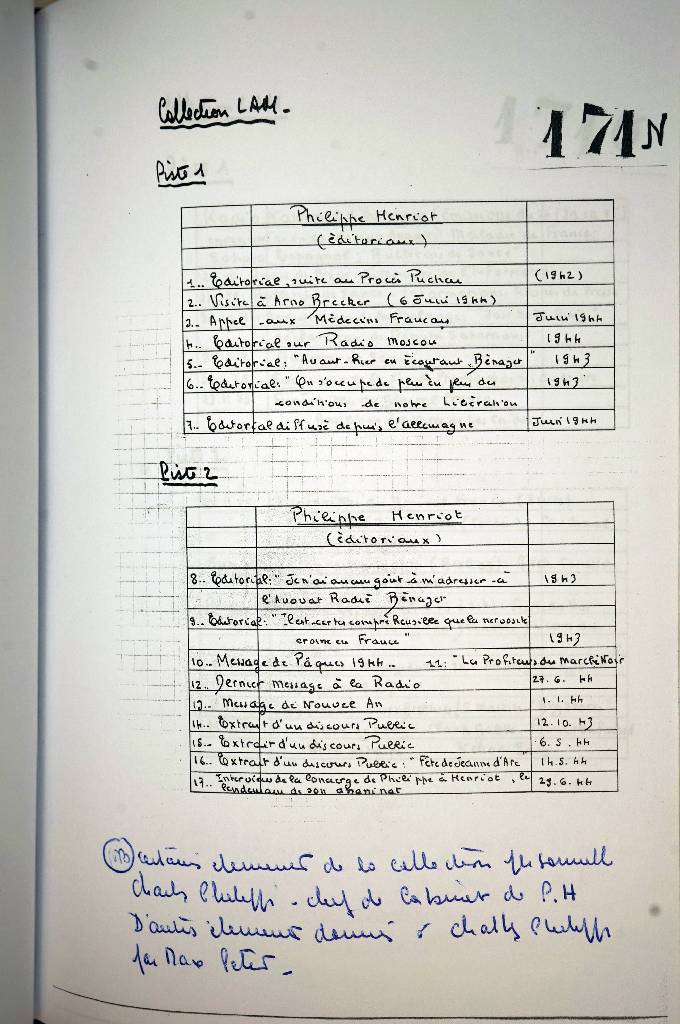 Collection LAM -
171 N
Piste 1
Philippe Henriot
(èditoriaux)
1.. Editorial, suite au Procès Pucheu (1942)
2.. Visite à Arno Brecker (6 Juin 1944)
3.. Appel aux Médecins Francais Juin 1944
4.. Editorial sur Radio Moscou 1944
5.. Editorial: "Avant-Hier en Ecoutant Bénazet" 1943
6.. Editorial: "On s'occupe de plus en plus des 1943
conditions de notre Libération
7.. Editorial diffusé depuis l'allemagne Juin 1944
Piste 2
Philippe Henriot
(èditoriaux)
8.. Editorial: "Je n'ai aucun goût à m'adresser à 1943
l'Avocat Radié Bénazet
9.. Editorial: "Il est certes compréhensible que la nervosité
croisse en France" 1943
10.. Message de Pâques 1944.. 11: "Les Profiteurs du Marché Noir
12.. Dernier message à la Radio 27.6. 44
13.. Message de Nouvel An 1.1.44
14.. Extrait d'un discours Public 12.10.43
15.. Extrait d'un discours Public 6.5.44
16.. Extrait d'un discours Public: "Fête de Jeanne d'Arc" 14.5.44
17.. Interview de la Concierge de Philippe à Henriot, le 29.6.44
lendemain de son assassinat
certains element de la collection personnell
Charles Philippe - chef de Cabinet de P.H
D'autres element donnés à Charles Philippe
par Max Peter -